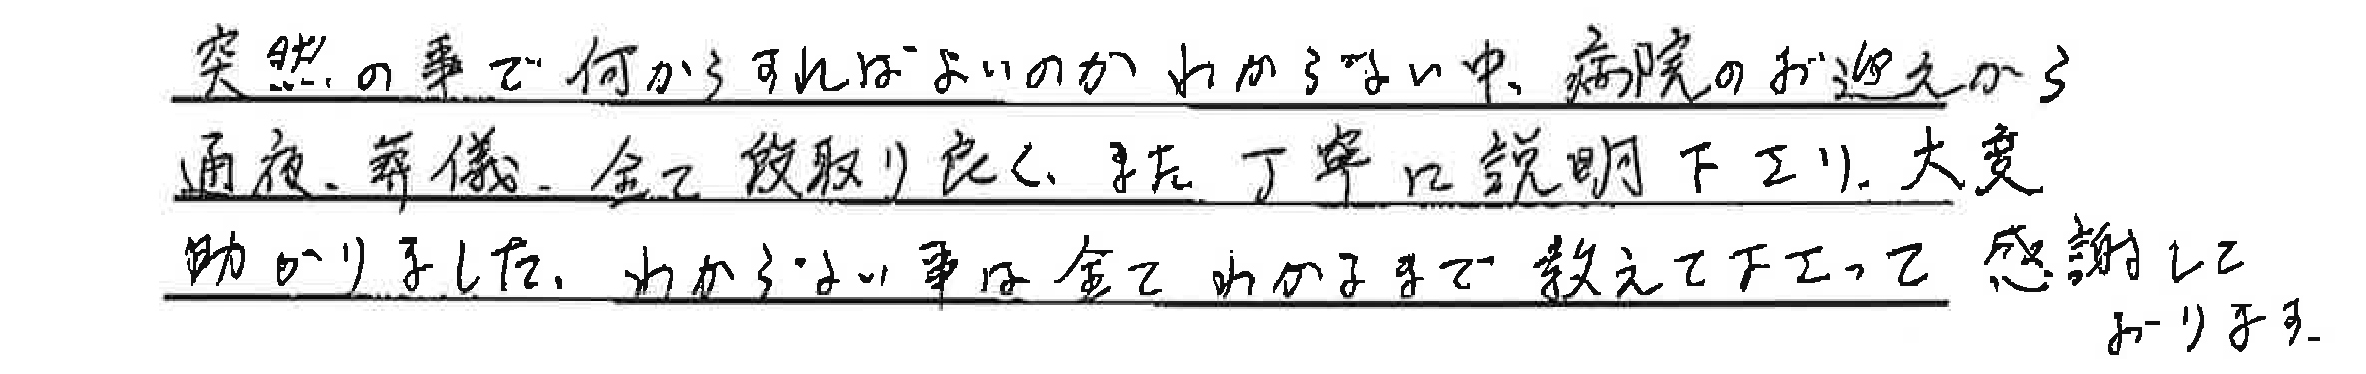 突然の事で何からすればよいのかわからない中、病院のお迎えから
通夜、葬儀、全て段取り良く、また丁寧に説明下さり、大変
助かりました、わからない事は全てわかるまで教えて下さって感謝して
おります。